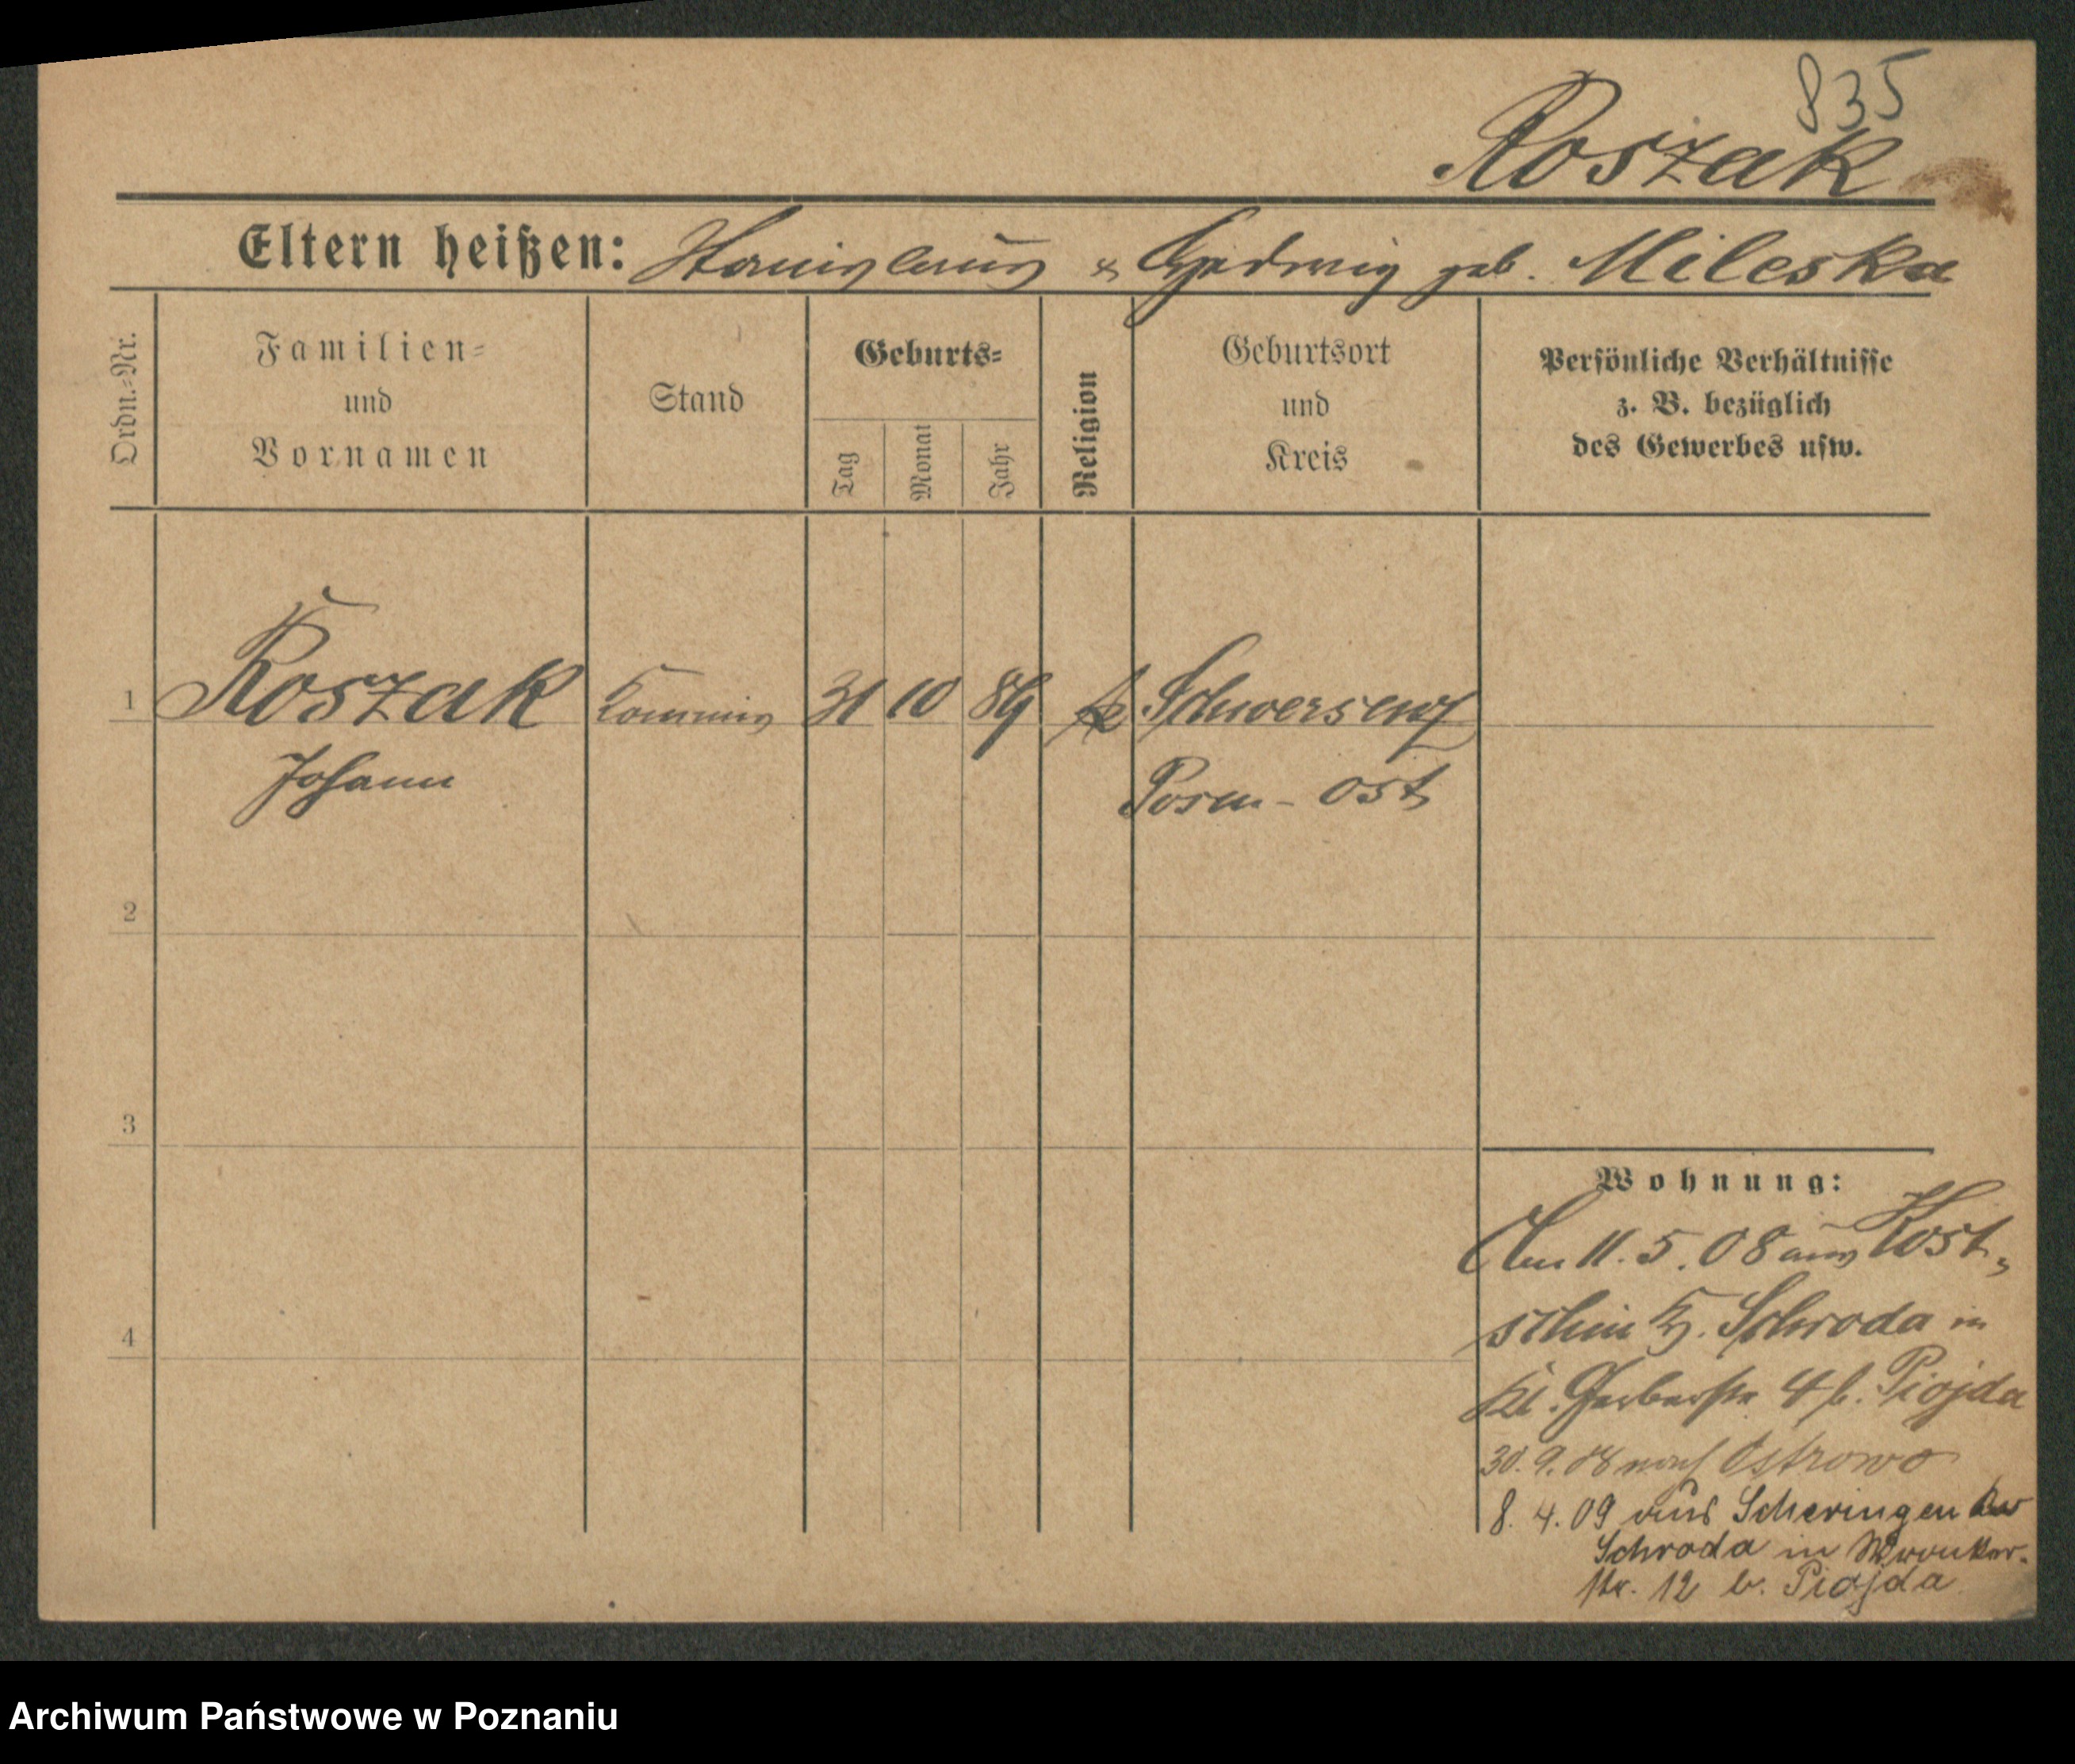 835
Roszak
Eltern heißen: Stanislaus & Hedwig geb. Mileska
Ordn.-Nr.
Familien-
und
Vornamen
Stand
Geburts-
Tag
Monat
Jahr
Religion
Geburtsort
und
Kreis
Persönliche Verhältnisse
z. B. bezüglich
des Gewerbes usw.
1 Roszak Commis 31 10 89 k Schwersenz
Johann Posen-Ost
2
3
4
Wohnung:
Am 11.5.08 aus Kost-
schin Kr. Schroda in
Kl. Gerberstr 4 b. Piojda
30.9.08 nach Ostrowo
8.4.09 aus Scheringen Kr
Schroda in Wronker-
str. 12 b. Piojda
Archiwum Państwowe w Poznaniu